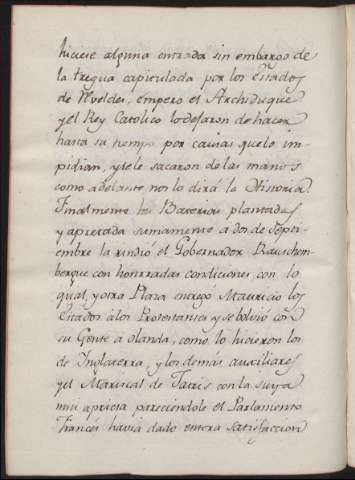 hiciese alguna entrada sin embargo de
la tregua capitulada por los Estados
de Mueldes, empero el Archiduque
y el Rey Catolico lo dejaron de hacer
hasta su tiempo por causas que lo im-
pidian, y se le sacaron de las manos
como adelante nos lo dirá la Historia.
Finalmente las Baterias plantadas
y apretada sumamente a dos de Septi-
embre la rindió el Gobernador Rauschem-
bergue con honrradas condiciones con lo
qual, y otra Plaza entregó Mauricio los
Estados á los Protestantes y se bolvió con
su Gente a olanda, como lo hicieron los
de Inglaterra, y los demás auxiliares
y el Mariscal de Jatris con la suya
mui aprieta pareciendole el Parlamento
Francés havia dado entera satisfaccion